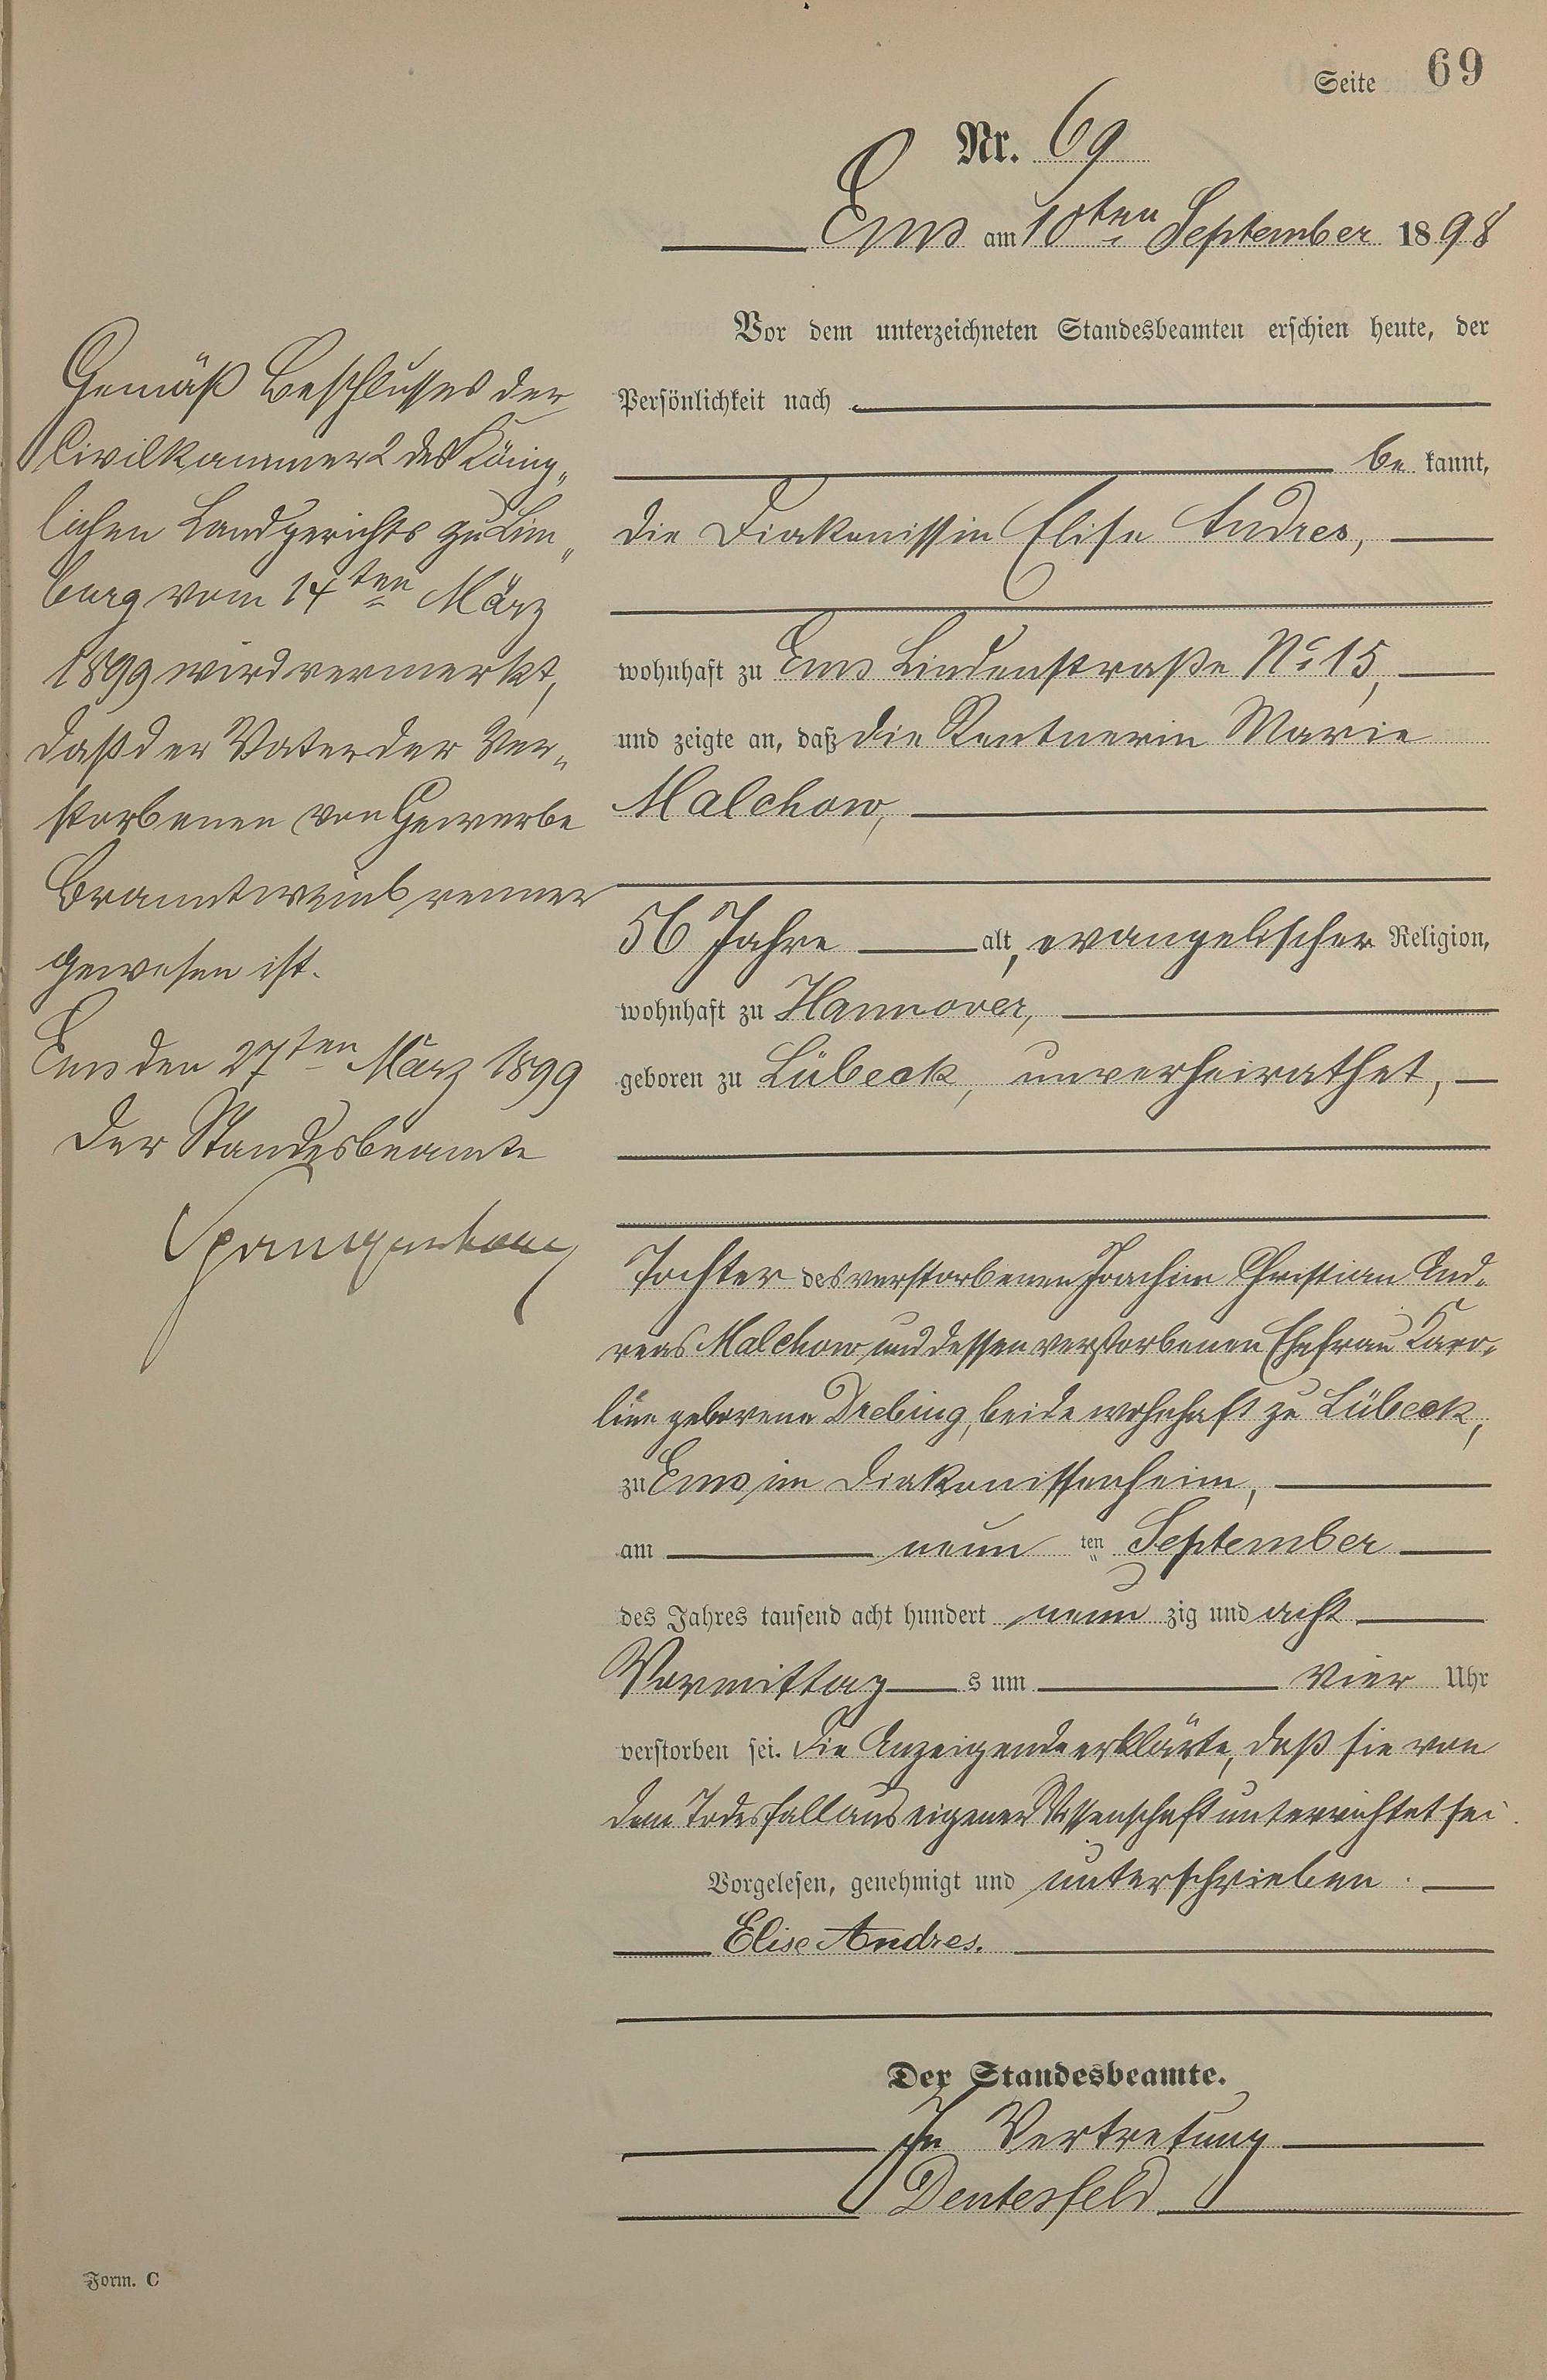 Seite 69
Nr. 69
Ems am 10ten September 1898
Vor dem unterzeichneten Standesbeamten erschien heute, der
Persönlichkeit nach
be kannt,
die Diakonissin Elise Andres,
wohnhaft zu Ems Lindenstraße No 15,
und zeigte an, daß die Rentnerin Marie
Malchow,
56 Jahre alt, evangelischer Religion,
wohnhaft zu Hannover,
geboren zu Lübeck, unverheirathet,
Tochter des verstorbenen Joachim Christian And-
reas Malchow und dessen verstorbenen Ehefrau Karo-
line geborene Drebing, beide wohnhaft zu Lübeck,
zu Ems im Diakonissenheim,
am neun ten September
des Jahres tausend acht hundert neun zig und acht
Vormittag s um vier Uhr
verstorben sei. Die Anzeigende erklärte, daß sie von
dem Todesfall aus eigener Wissenschaft unterrichtet sei.
Vorgelesen, genehmigt und unterschrieben.
Elise Andres.
Der Standesbeamte.
In Vertretung
Dentesfeld
Gemäß Beschlusses der
Civilkammer 2 des König„
lichen Landgerichts zu Lim„
burg vom 14ten März
1899 wird vermerkt,
daß der Vater der Ver„
storbenen von Gewerbe
Branntweinbrenner
gewesen ist.
Ems den 27ten März 1899
Der Standesbeamte
Form. C